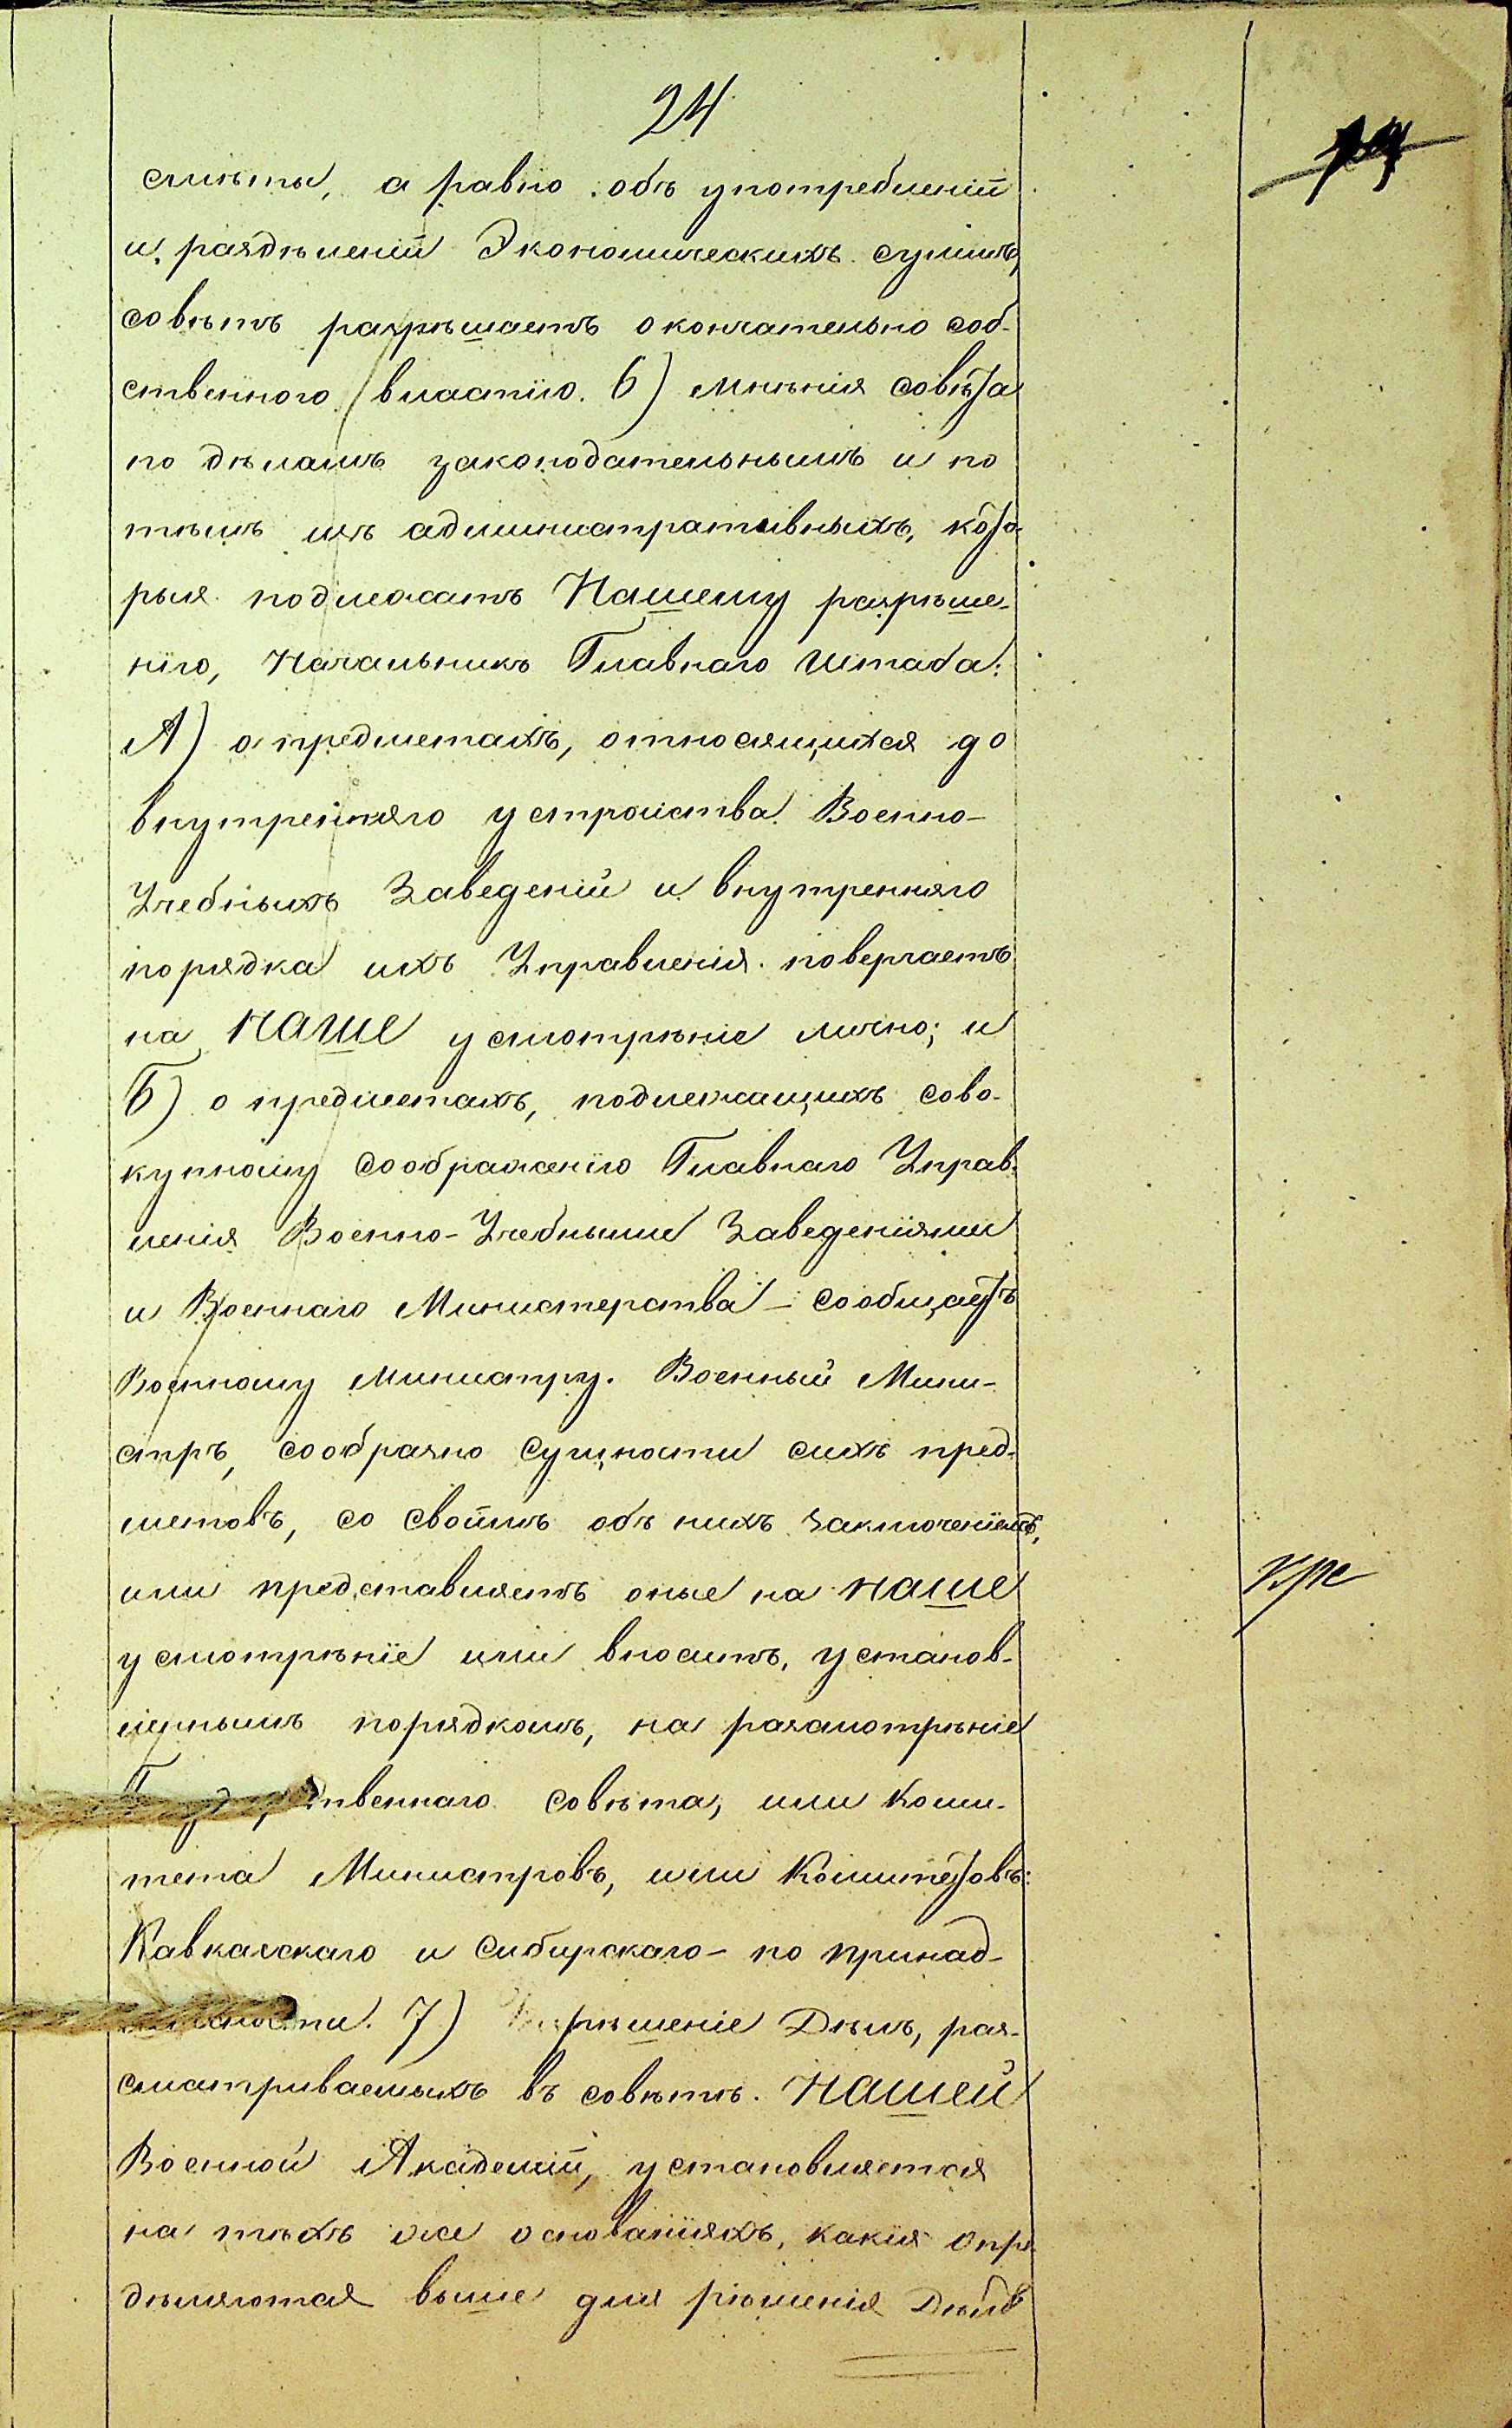 24
смѣты, а равно объ употребленіи
и раздѣленіи Экономическихъ суммъ,
совѣтъ разрѣшаетъ окончательно соб-
ственного властію. 6) мнѣнія совѣта
по дѣламъ законодательнымъ и по
тѣмъ изъ административныхъ, кото-
рыя подлежатъ Нашему разрѣше-
нію, Начальникъ Главнаго Штаба:
А) о предметахъ, относящихся до
внутренняго устройства Военно-
Учебныхъ Заведеній и внутренняго
порядка ихъ Управленія повергаетъ
на НАШЕ усмотрѣніе лично; и
Б) о предметахъ, подлежащихъ сово-
купному соображенію Главнаго Управ-
ленія Военно-Учебными Заведеніями
и Военнаго Министерства - сообщаетъ
Военному Министру. Военный Мини-
стръ, сообразно сущности сихъ пред-
метовъ, со своимъ объ нихъ заключеніемъ,
или представляетъ оные на НАШЕ
усмотрѣніе или вноситъ, установ-
леннымъ порядкомъ, на разсмотрѣніе
твеннаго совѣта, или Коми-
тета Министровъ, или Комитетовъ:
Кавказскаго и Сибирскаго - по принад-
7) рѣшеніе Дѣлъ, раз-
сматриваемыхъ въ совѣтѣ НАШЕЙ
Военной Академіи, установляется
на тѣхъ же основаніяхъ, какія опре-
дѣляются выше для рѣшенія Дѣлъ